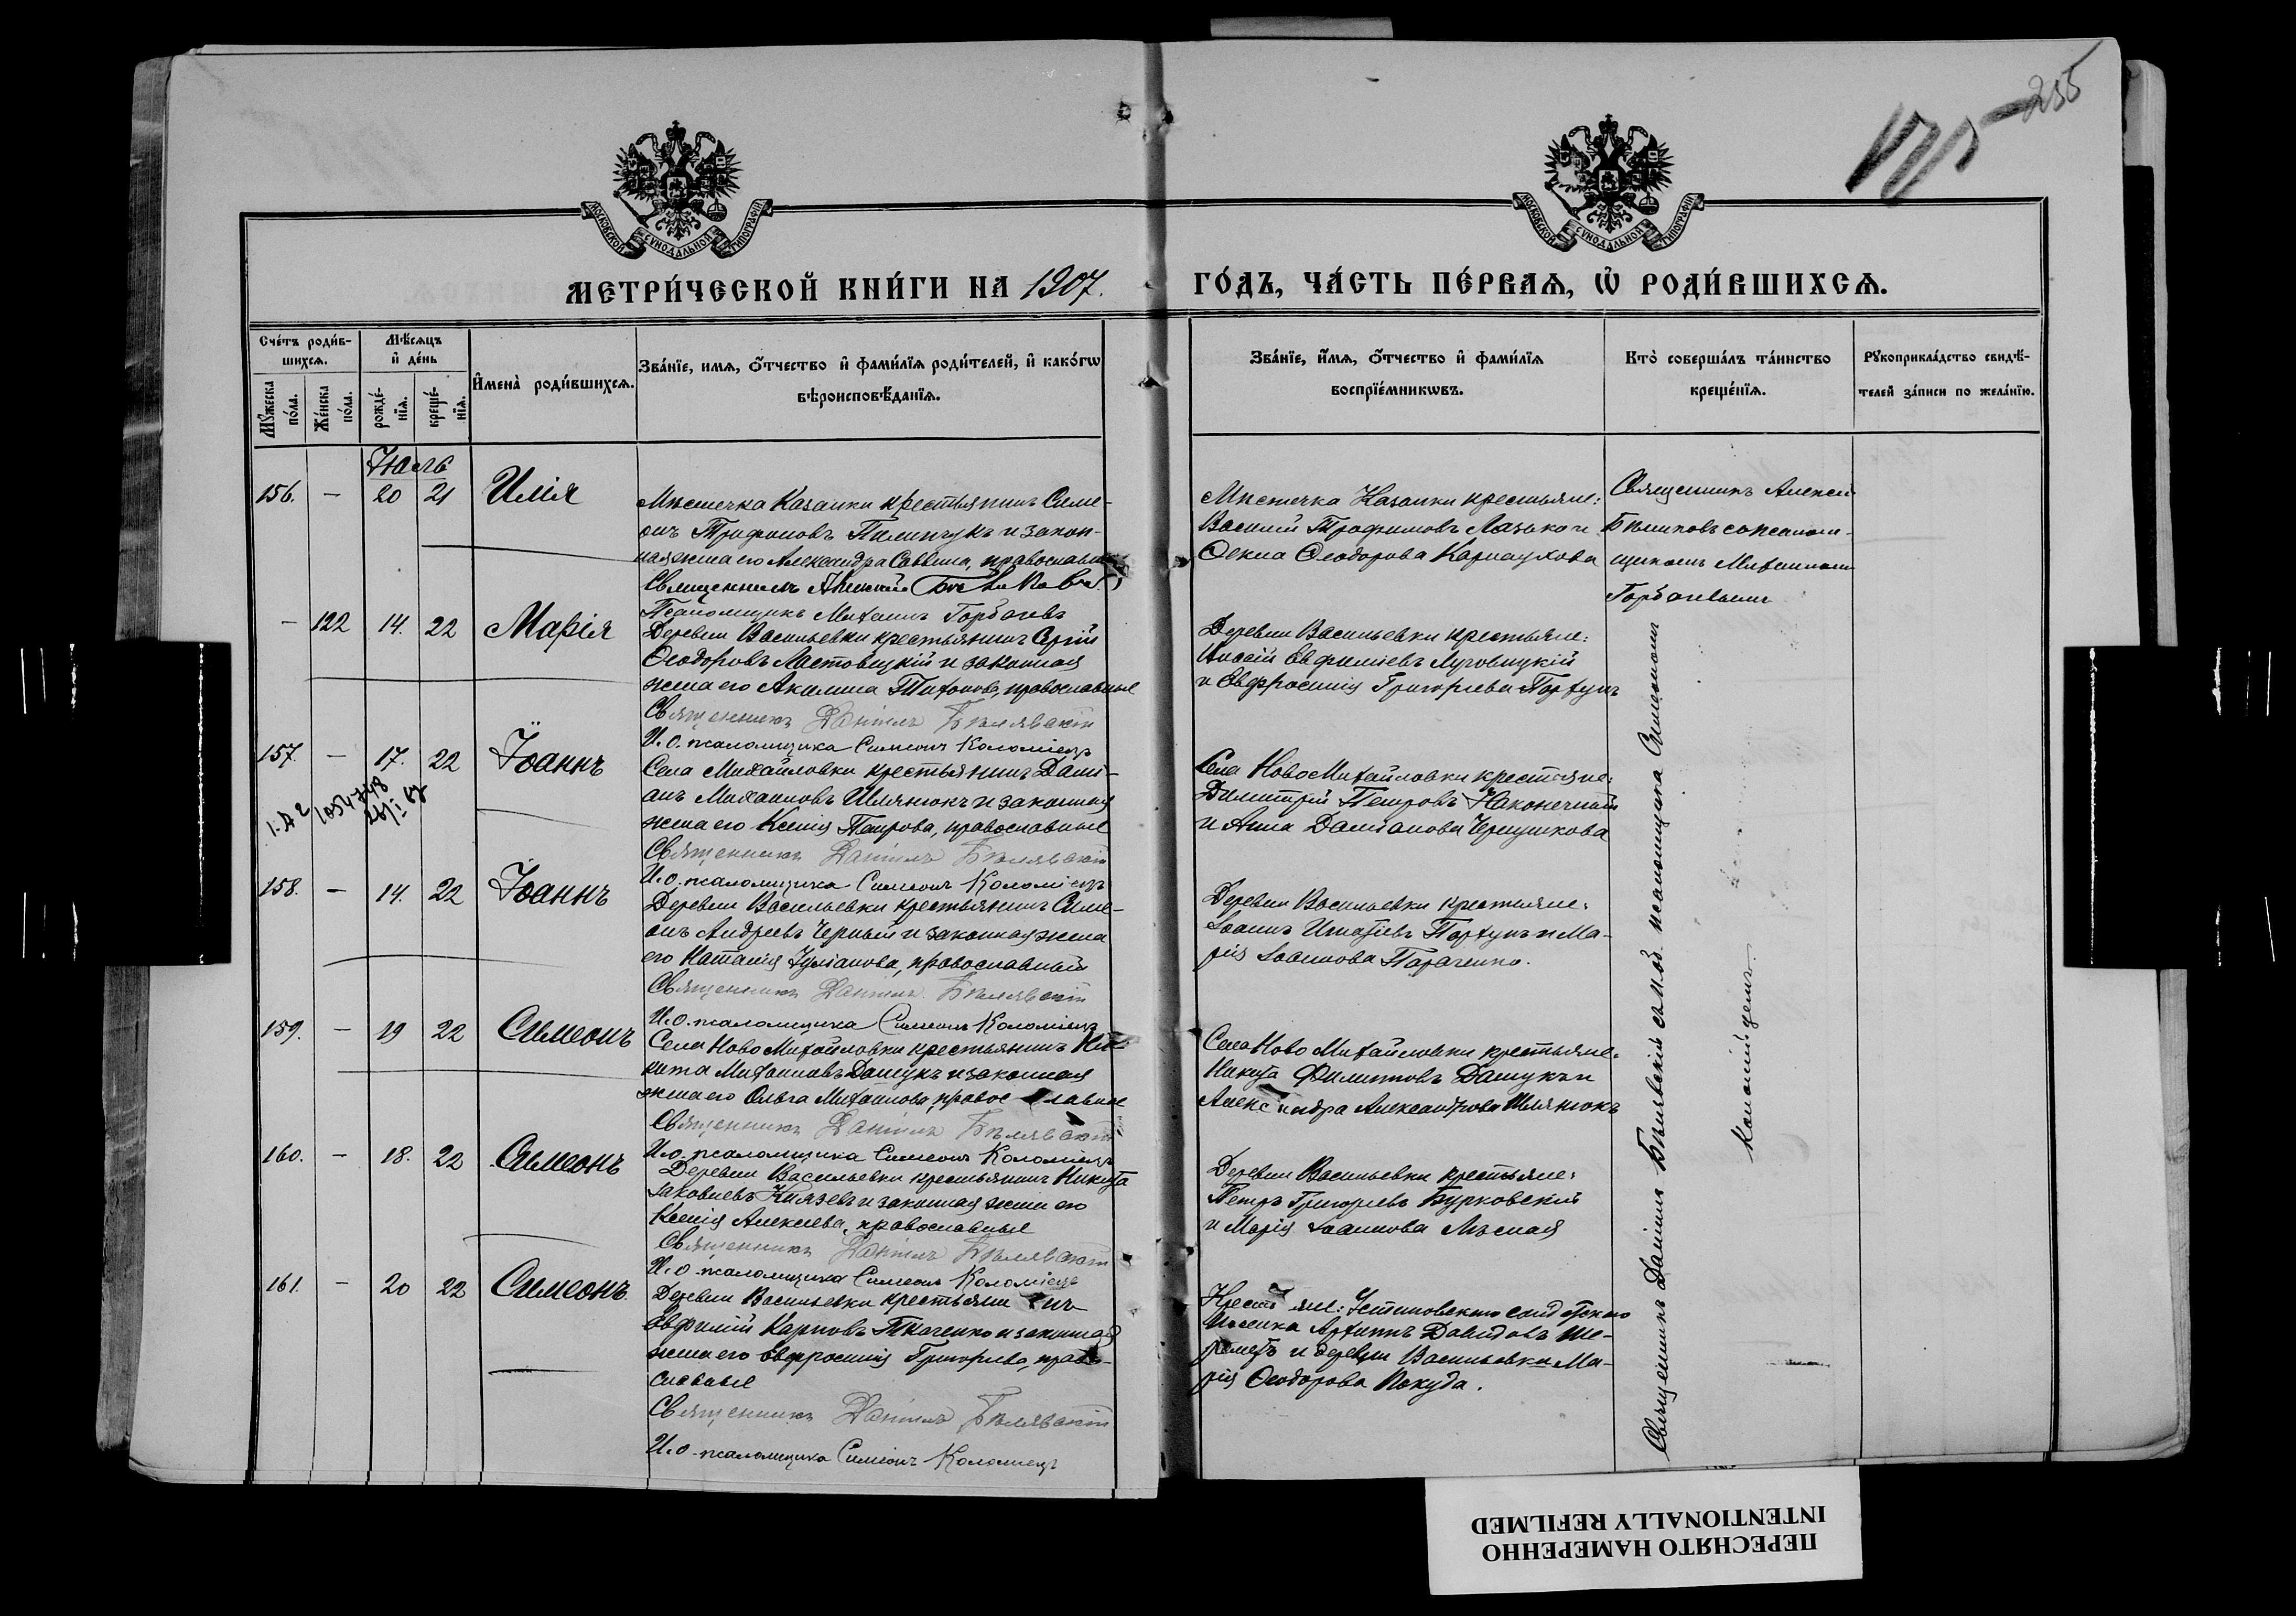 175
255
МОСКОВСКОЙ СѴНОДАЛЬНОЙ ТИПОГРАФІИ
МОСКОВСКОЙ СѴНОДАЛЬНОЙ ТИПОГРАФІИ
МЕТРИ́ЧЕСКОЙ КНИ́ГИ НА 1907. ГО́ДЪ, ЧА́СТЬ ПЕ́РВАѦ, Ѡ РОДИ́ВШИХСѦ.
Сче́тъ роди́в-
шихсѧ.
Мꙋжеска по́ла.
Же́нска по́ла.
Мѣ́сѧцъ и де́нь
рожде́-
нїѧ.
креще́-
нїѧ.
И҆мена̀ роди́вшихсѧ.
Зва́нїе, имѧ, ѻ҆́тчество и҆ фами́лїѧ роди́телей, и҆ како́гѡ
вѣроисповѣ́данїѧ.
Зва́нїе, и҆́мѧ, ѻ҆́тчество и҆ фами́лїѧ
воспрїе́мникѡвъ.
Кто̀ соверша́лъ та́инство
креще́нїѧ.
Рꙋкоприкла́дство свидѣ́-
телей за́писи по жела́нїю.
Июль
156. — 20 21 Илія
Мѣстечка Казанки крестьянинъ Симе-
онъ Трифоновъ Пилипчукъ и закон-
ная жена его Александра Саввина, православные
Священникъ Алексій Бѣликовъ
Псаломщикъ Михаилъ Горбачевъ
Мѣстечка Казанки крестьяне:
Василій Трофимовъ Лазько и
Ѳекла Ѳеодорова Карнаухова
Священникъ Алексій
Бѣликовъ с псалом-
щикомъ Михаиломъ
Горбачевымъ
— 122 14. 22 Марія
Деревни Васильевки крестьянинъ Сергій
Ѳеодоровъ Ластовецкій и законная
жена его Акилина Тихонова, православные
Священникъ Даніилъ Бѣлявскій
И. о. псаломщика Симеонъ Коломіецъ
Деревни Васильевки крестьяне:
Евфиміевъ Луговицкій
и Евфросинія Григорьева Портунъ
157. — 17. 22 Іоаннъ
1054748
Села Михайловки крестьянинъ Дамі-
анъ Михаиловъ Шлянюкъ и законная
жена его Ксенія Петрова, православные
Священникъ Даніилъ Бѣлявскій
И. о. псаломщика Симеонъ Коломіецъ
Села Ново Михайловки крестьяне:
Димитрій Петровъ Наконечный
и Анна Даміанова Чернушкова
158. — 14. 22 Іоаннъ
Деревни Васильевки крестьянинъ Симе-
онъ Андреевъ Черный и законная жена
его Наталія Іуліанова, православные
Священникъ Даніилъ Бѣлявскій
И. о. псаломщика Симеонъ Коломіецъ
Деревни Васильевки крестьяне:
Іоаннъ Игнатіевъ Портунъ и Ма-
рія Іоаннова
159. — 19 22 Симеонъ
Села Ново Михайловки крестьянинъ Ни-
кита Михаиловъ Дащукъ и законная
жена его Ольга Михаилова, православные
Священникъ Даніилъ Бѣлявскій
И. о. псаломщика Симеонъ Коломіецъ
Села Ново Михайловки крестьяне:
Никита Филипповъ Дащукъ и
Александра Александрова Шлянюкъ
160. — 18. 22 Симеонъ
Деревни Васильевки крестьянинъ Никита
Іаковлевъ Князевъ и законная жена его
Ксенія Алексіева, православные
Священникъ Даніилъ Бѣлявскій
И. о. псаломщика Симеонъ Коломіецъ
Деревни Васильевки крестьяне:
Петръ Григорьевъ Бурковскій
и Марія Іоаннова Лѣсная
161. — 20 22 Симеонъ
Деревни Васильевки крестьянинъ
Евфимій Карповъ Ткаченко и законная
жена его Евфросинія Григорьева, право-
славные
Священникъ Даніилъ Бѣлявскій
И. о. псаломщика Симеонъ Коломіецъ
Крестьяне:
Давидовъ Ше-
реметъ и деревни Васильевки Ма-
рія Ѳеодорова Покуда.
Священникъ Даніилъ Бѣлявскій с и. об. псаломщика Симеономъ
Коломійцемъ.
ПЕРЕСНЯТО НАМЕРЕННО
INTENTIONALLY REFILMED